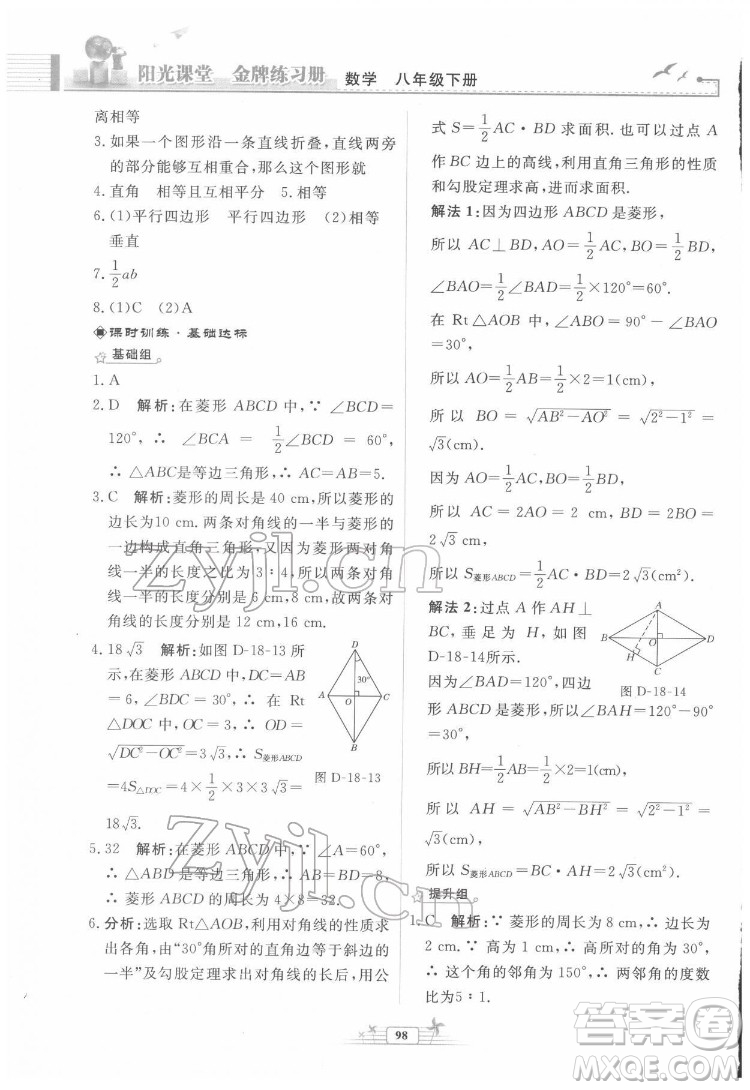 阳光课堂 金牌练习册 数学 八年级下册
离相等
3. 如果一个图形沿一条直线折叠，直线两旁
的部分能够互相重合，那么这个图形就
4. 直角 相等且互相平分 5. 相等
6. (1)平行四边形 平行四边形 (2)相等
垂直
7. 1/2 ab
8. (1)C (2)A
课时训练·基础达标
基础组
1. A
2. D 解析：在菱形 ABCD 中，∵ ∠BCD =
120°，∴ ∠BCA = 1/2 ∠BCD = 60°，
∴ △ABC是等边三角形，∴ AC=AB=5.
3. C 解析：菱形的周长是 40 cm，所以菱形的
边长为10 cm. 两条对角线的一半与菱形的
一边构成直角三角形，又因为菱形两对角
线一半的长度之比为 3∶4，所以两条对角
线一半的长度分别是 6 cm，8 cm，两条对
角线的长度分别是 12 cm，16 cm.
4. 18√3 解析：如图 D-18-13 所
示，在菱形 ABCD 中，∵ CD
=6，∠BDC = 30°，∴ 在 Rt
△DOC 中，OC = 3，∴ OD =
√(DC²-OC²)=3√3，∴ S菱形ABCD
=4S△DOC = 4 × 1/2 × 3 × 3√3 =
18√3.
D
30°
A
O
C
B
图 D-18-13
5. 32 解析：在菱形 ABCD 中，∵ ∠A=60°，
∴ △ABD 是等边三角形，∴ AB=BD=8，
∴ 菱形 ABCD 的周长为 4×8=32.
6. 分析：选取 Rt△AOB，利用对角线的性质求
出各角，由“30°角所对的直角边等于斜边的
一半”及勾股定理求出对角线的长后，用公
式 S=1/2 AC·BD 求面积. 也可以过点 A
作 BC 边上的高线，利用直角三角形的性质
和勾股定理求高，进而求面积.
解法 1：因为四边形 ABCD 是菱形，
所以 AC⊥BD，AO=1/2 AC，BO=1/2 BD，
∠BAO=1/2 ∠BAD=1/2×120°=60°.
在 Rt △AOB 中，∠ABO = 90° - ∠BAO
=30°，
所以 AO=1/2 AB=1/2×2=1(cm)，
所以 BO = √(AB²-AO²) = √(2²-1²) =
√3(cm).
因为 AO=1/2 AC，BO=1/2 BD，
所以 AC = 2AO = 2(cm)，BD = 2BO =
2√3(cm)，
所以 S菱形ABCD=1/2 AC·BD=2√3(cm²).
解法 2：过点 A 作 AH⊥
BC，垂足为 H，如图
D-18-14所示.
因为∠BAD=120°，四边
形 ABCD 是菱形，所以∠BAH=120°-90°
=30°，
A
B
O
D
H
C
图 D-18-14
所以 BH=1/2 AB=1/2×2=1(cm)，
所以 AH = √(AB²-BH²) = √(2²-1²) =
√3(cm)，
所以 S菱形ABCD=BC·AH=2√3(cm²).
提升组
1. C 解析：菱形的周长为 8 cm，∴ 边长为
2 cm. ∵ 高为 1 cm，∴ 这个角为 30°，
∴ 这个角的邻角为 150°，∴ 两邻角的度数
比为5∶1.
98
zyjl.cn
zyjl.cn
答案圈
MXQE.COM